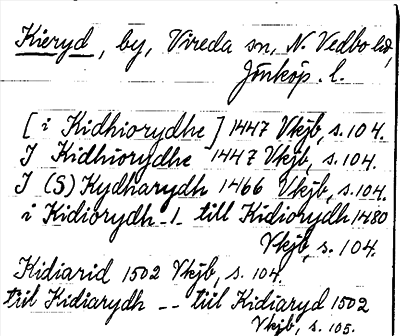 Kieryd, by, Vireda sn, N. Vedbo hd,
Jönköp. l.
[i Kidhiorydhe] 1447 Vkjb, s. 104.
I Kidhiorydhe 1447 Vkjb, s. 104.
I (S) Kydharydh 1466 Vkjb, s. 104.
i Kidiorydh - 1 - till Kidiorydh 1480
Vkjb, s. 104.
Kidiarid 1502 Vkjb, s. 104.
till Kidiarydh -- till Kidiaryd 1502
Vkjb, s. 105.